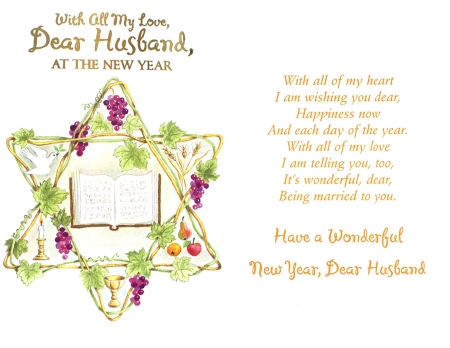 With All My Love,
Dear Husband,
AT THE NEW YEAR
With all of my heart
I am wishing you dear,
Happiness now
And each day of the year.
With all of my love
I am telling you, too,
It's wonderful, dear,
Being married to you.
Have a Wonderful
New Year, Dear Husband